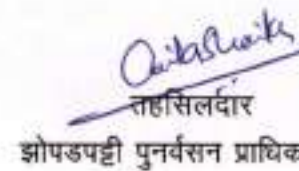 तहसिलदार
झोपडपट्टी पुनर्वसन प्राधिक